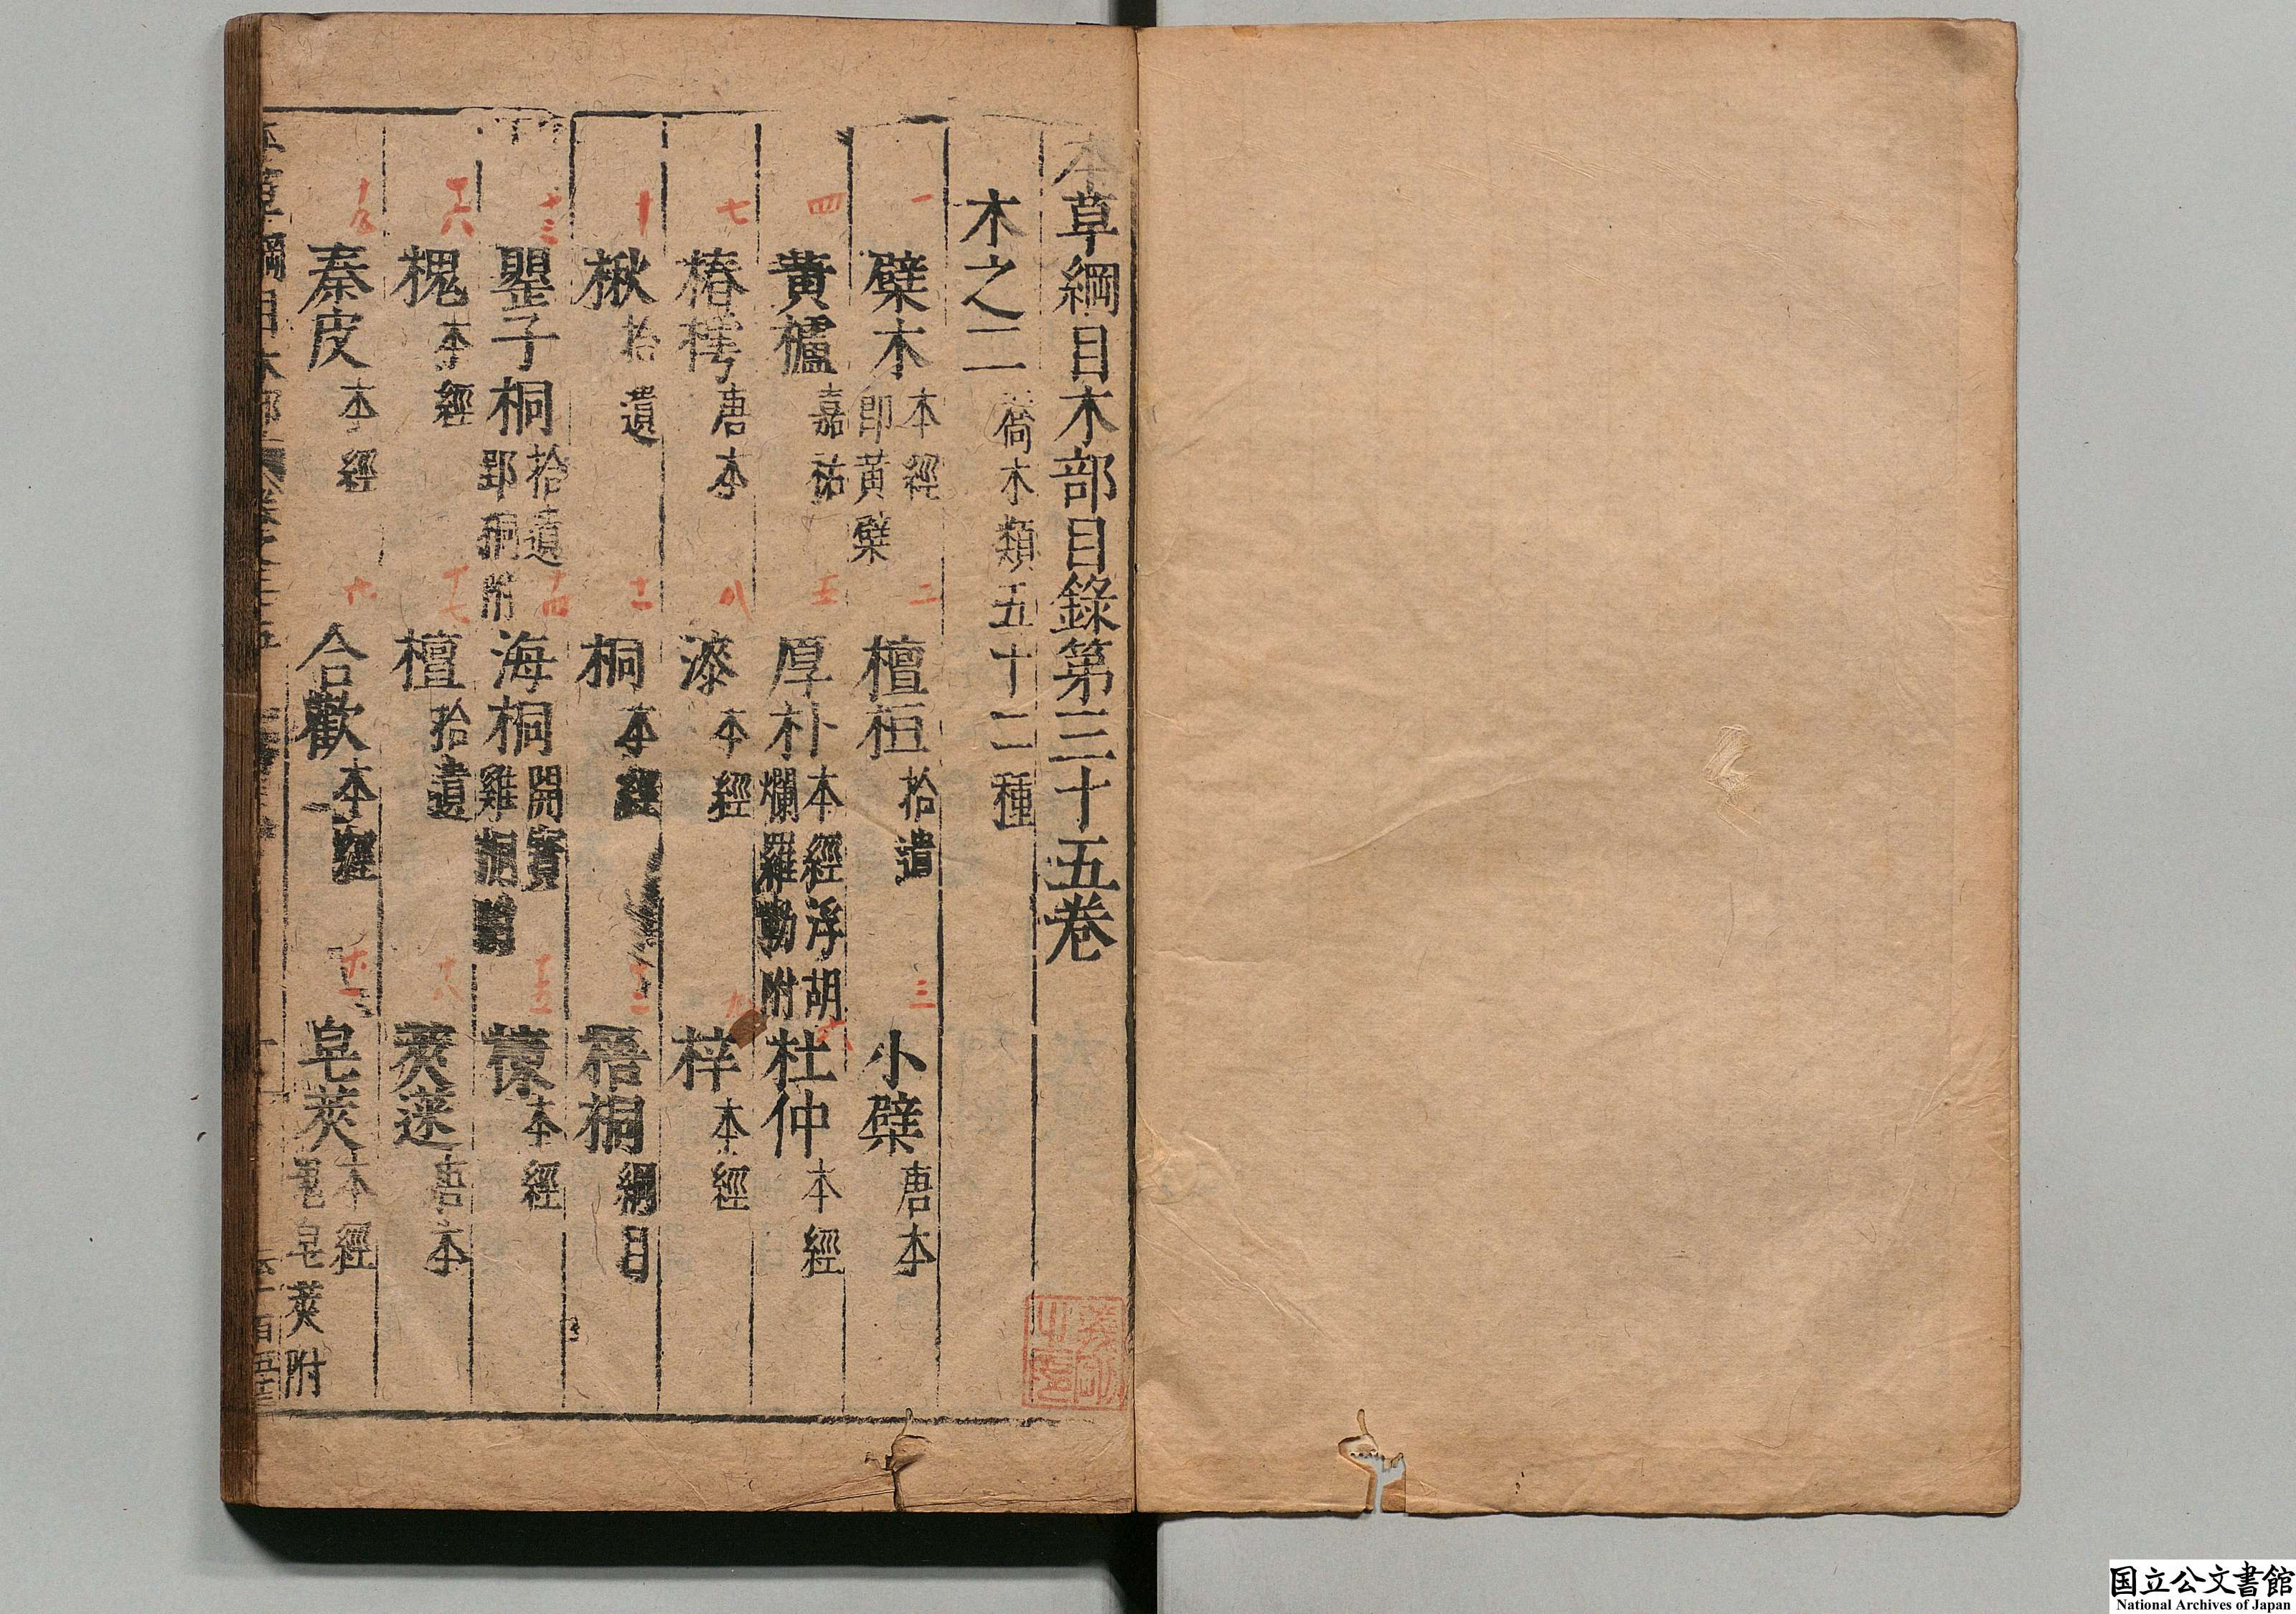 本草綱目木部目錄第三十五卷
木之二 喬木類五十二種
一 檗木 本經 即黃檗 二 檀桓 拾遺 三 小檗 唐本
四 黃櫨 嘉祐 五 厚朴 本經 浮胡爛羅勒附 六 杜仲 本經
七 椿樗 唐本 八 漆 本經 九 梓 本經
十 楸 拾遺 十一 桐 本經 十二 梧桐 綱目
十三 罌子桐 拾遺 郢桐附 十四 海桐 開寶 雞桐 十五 本經
十六 槐 本經 十七 檀 拾遺 十八 莢蒾 唐本
十九 秦皮 本經 合歡 本經 皂莢 本經 皂莢附
本草綱目木部
国立公文書館
National Archives of Japan